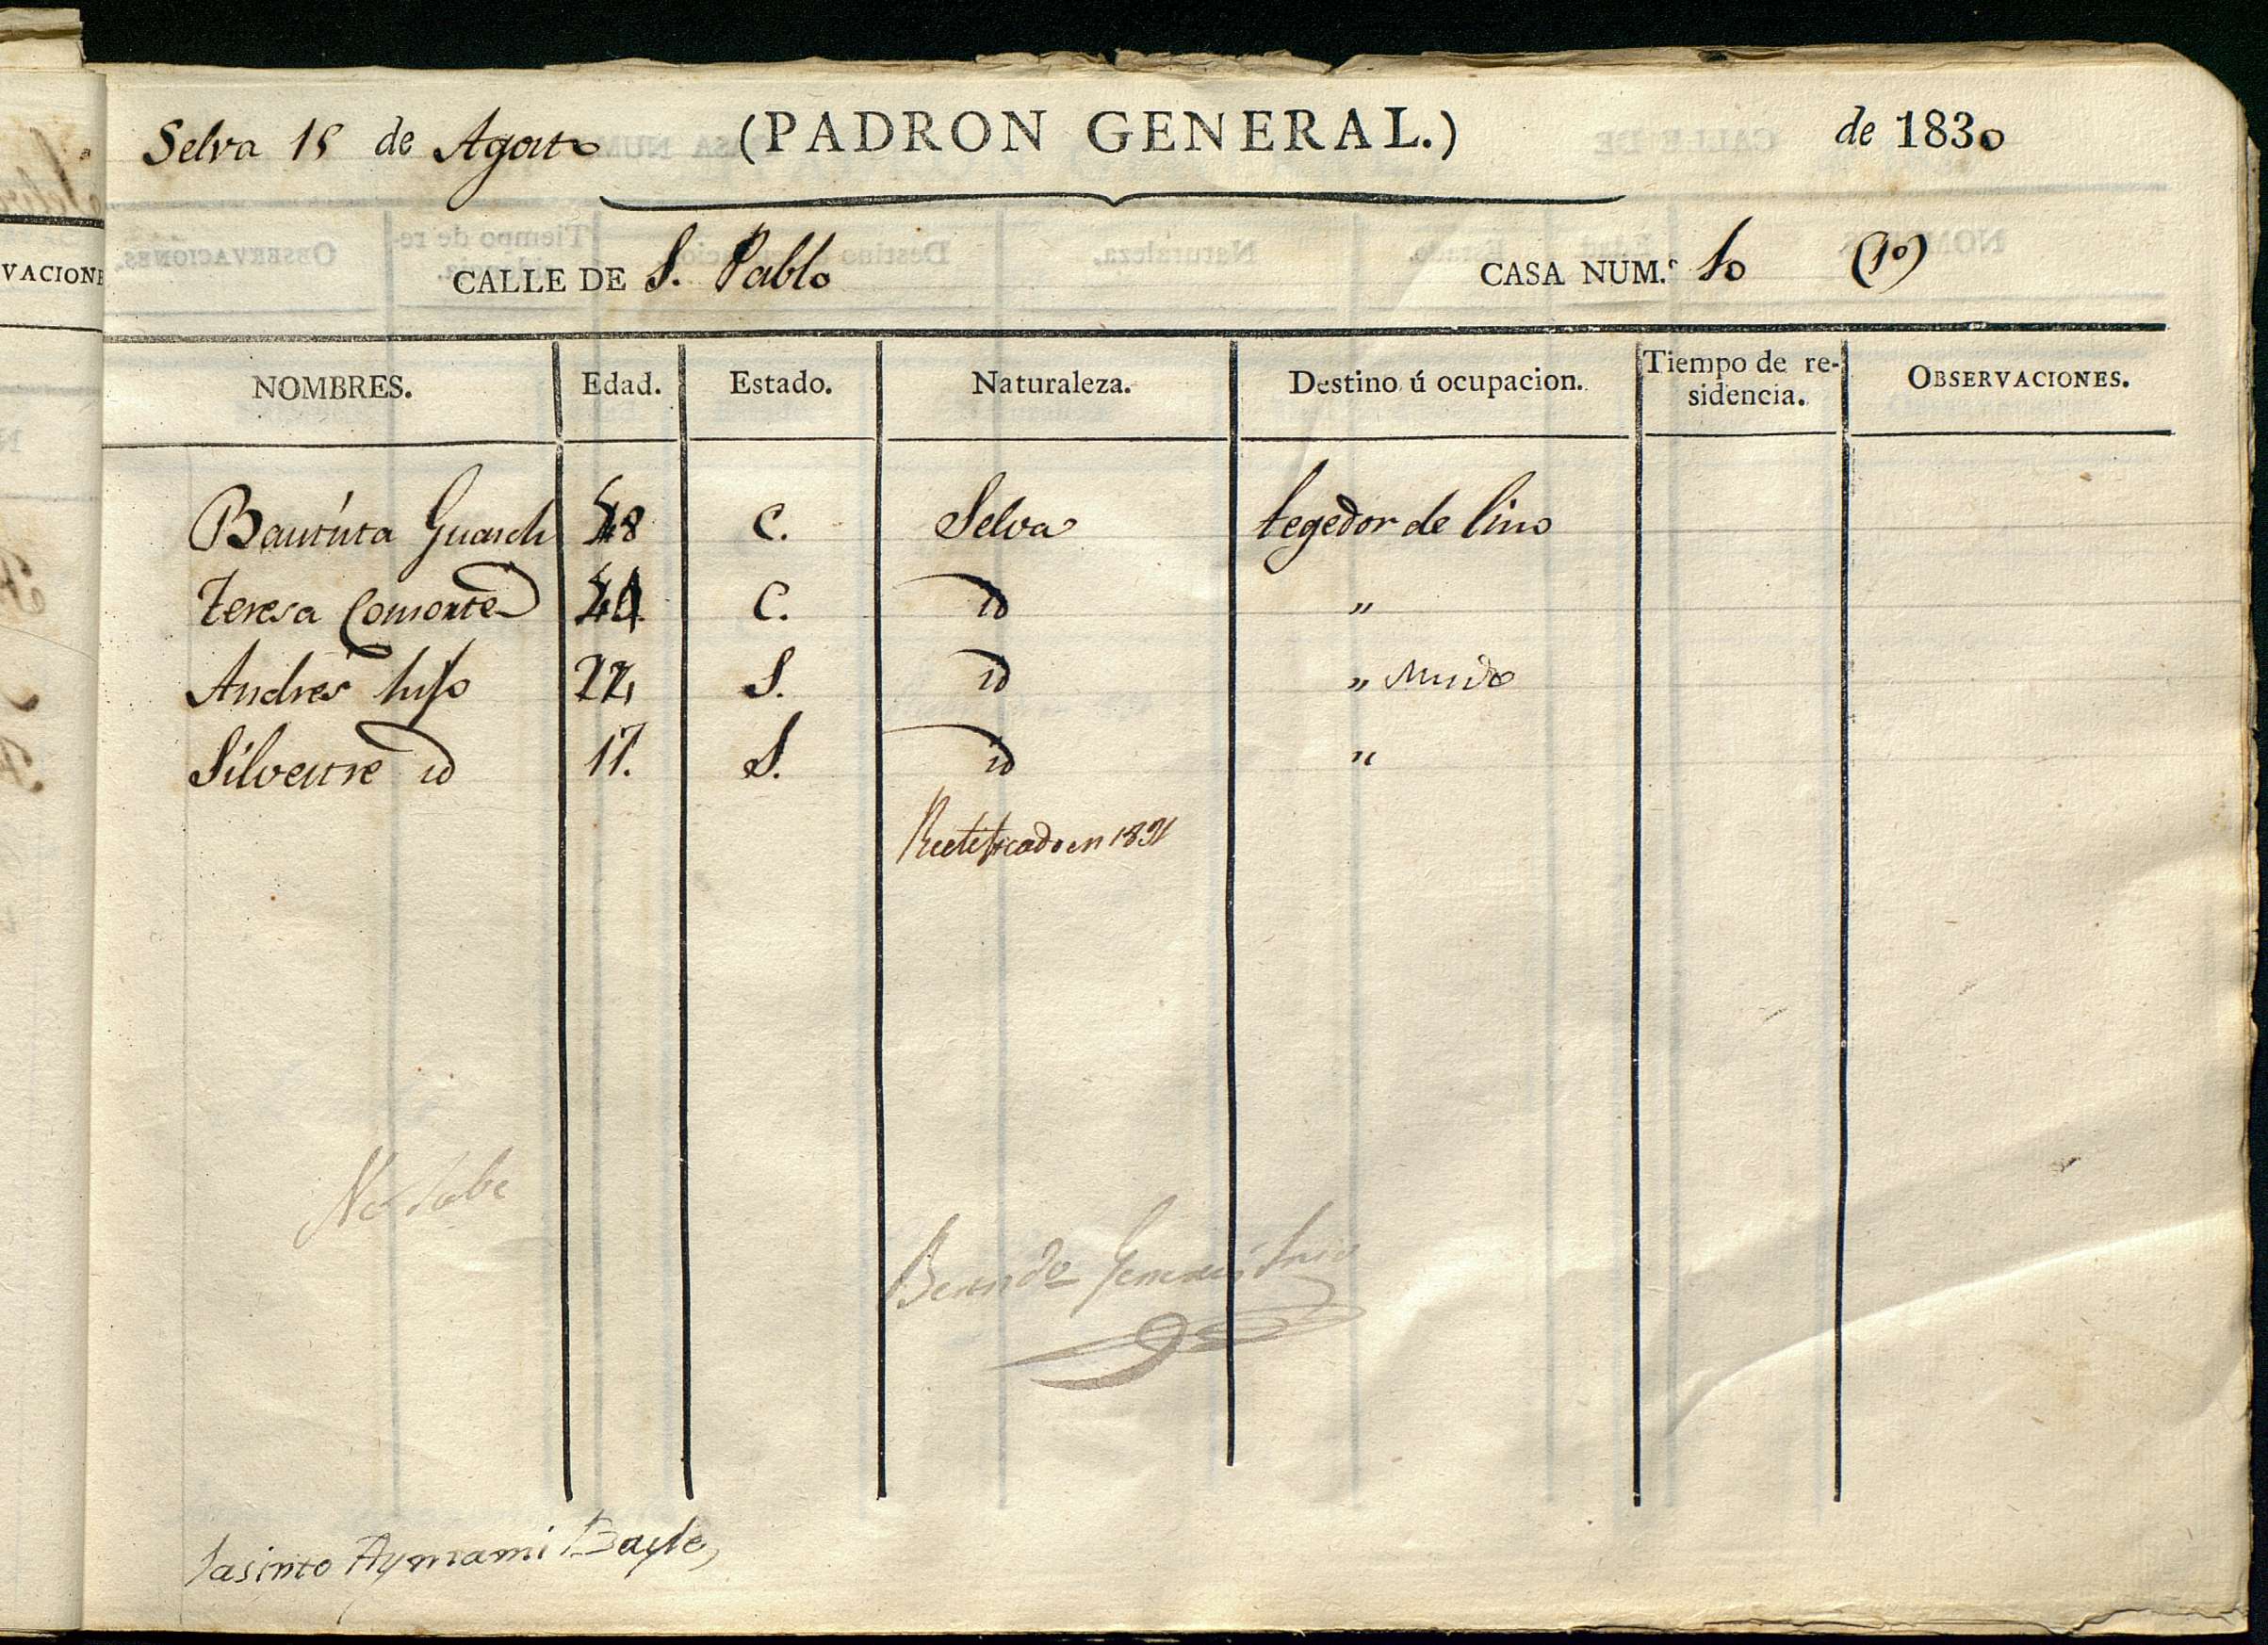 Selva 15 de Agosto (PADRON GENERAL.) de 1830
CALLE DE S. Pablo CASA NUM.º 10 (10)
NOMBRES. Edad. Estado. Naturaleza. Destino ú ocupacion. Tiempo de re-sidencia. OBSERVACIONES.
Bautista Guasch 48 C. Selva tegedor de lino
Teresa C. id "
Andres hijo 22 S. id " Mudo
Silvestre id 17. S. id "
Rectificado en 1831
No sabe
Jasinto Aymami Bayle
VACIONE